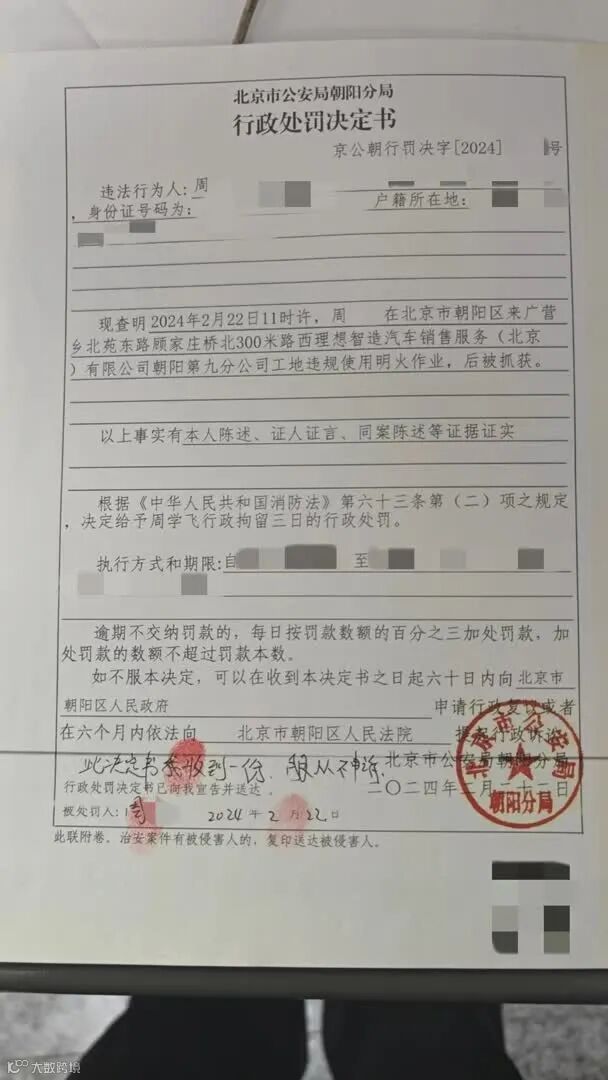 北京市公安局朝阳分局
行政处罚决定书
京公朝行罚决字[2024] 号
违法行为人：周
，身份证号码为： 户籍所在地：
现查明2024年2月22日11时许，周 在北京市朝阳区来广营
乡北苑东路顾家庄桥北300米路西理想智造汽车销售服务（北京
）有限公司朝阳第九分公司工地违规使用明火作业，后被抓获。
以上事实有本人陈述、证人证言、同案陈述等证据证实
根据《中华人民共和国消防法》第六十三条第（二）项之规定
，决定给予周学飞行政拘留三日的行政处罚。
执行方式和期限：自 至
逾期不交纳罚款的，每日按罚款数额的百分之三加处罚款，加
处罚款的数额不超过罚款本数。
如不服本决定，可以在收到本决定书之日起六十日内向北京市
朝阳区人民政府 申请行政复议或者
在六个月内依法向 北京市朝阳区人民法院 提起行政诉讼
此决定书我收到一份，服从不申诉. 北京市公安局朝阳分局
行政处罚决定书已向我宣告并送达。 二〇二四年二月二十二日
被处罚人：周 2024年2月22日
北京市公安局
朝阳分局
此联附卷。治安案件有被侵害人的，复印送达被侵害人。
大数跨境